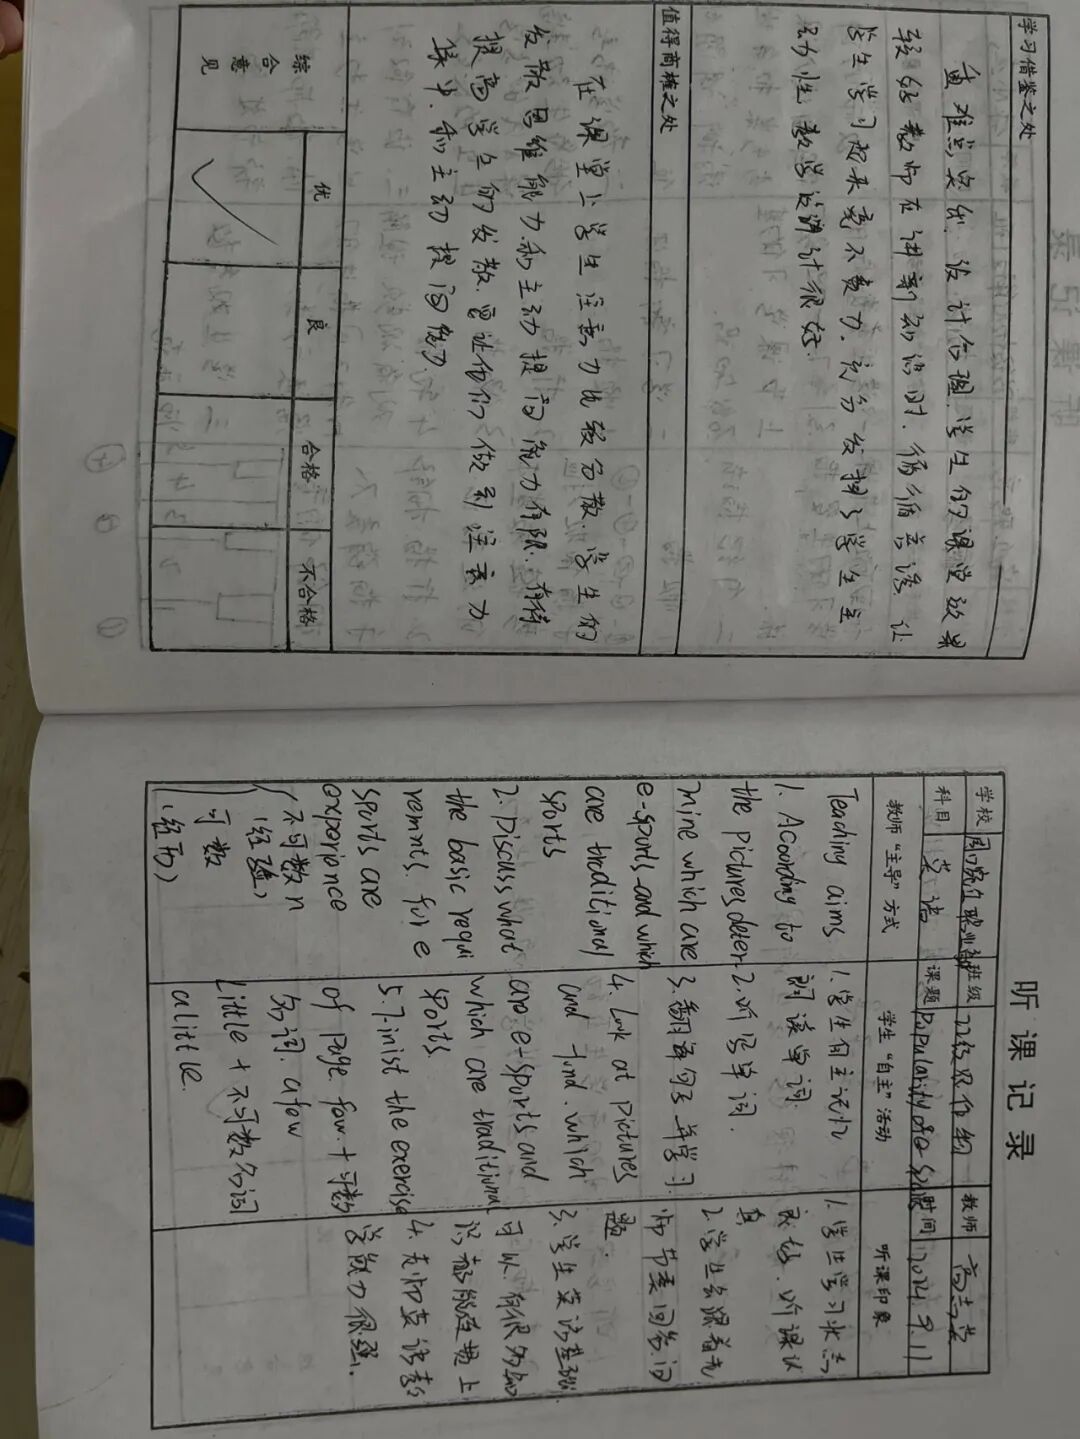 学习借鉴之处
重难点突出.设计合理.学生的课堂效果
较好.教师在讲新知识时.循循善诱.让
学生学习起来毫不费力.充分发挥了学生主
动性.教学设计很好.
值得商榷之处
在课堂上学生注意力比较分散.学生的
发散思维能力和主动提问能力有限.有待
提高学生的发散.
集中.和主动提问能力.
综合意见
优
良
合格
不合格
听课记录
学校
班级
22级
教师
科目
英语
课题
Popularity of e-sports
时间
2024.9.11
教师“主导”方式
学生“自主”活动
听课印象
Teading aims
1. Acoording to
the pictures.deter-
mine which are
e-sports and which
are traditional
sports
2. Discuss what
the basic requi
rements for e
sports are
experience
不可数n
(经验)
可数
(经历)
1.学生自主记忆
朗读单词.
2.听写单词.
3.翻译句子并学习.
4. Look at pictures
and find. which
are e-sports and
which are traditional
sports
5. Finist the exercise
of page. few.+可数
名词. a few
Little + 不可数名词
a little.
1.学生学习状态
较好.听课认
真
2.学生紧跟着老
师节奏回答问
题.
3.学生英语基础
可以.有很多知
识都能连贯上
4.老师英语教
学能力很强.